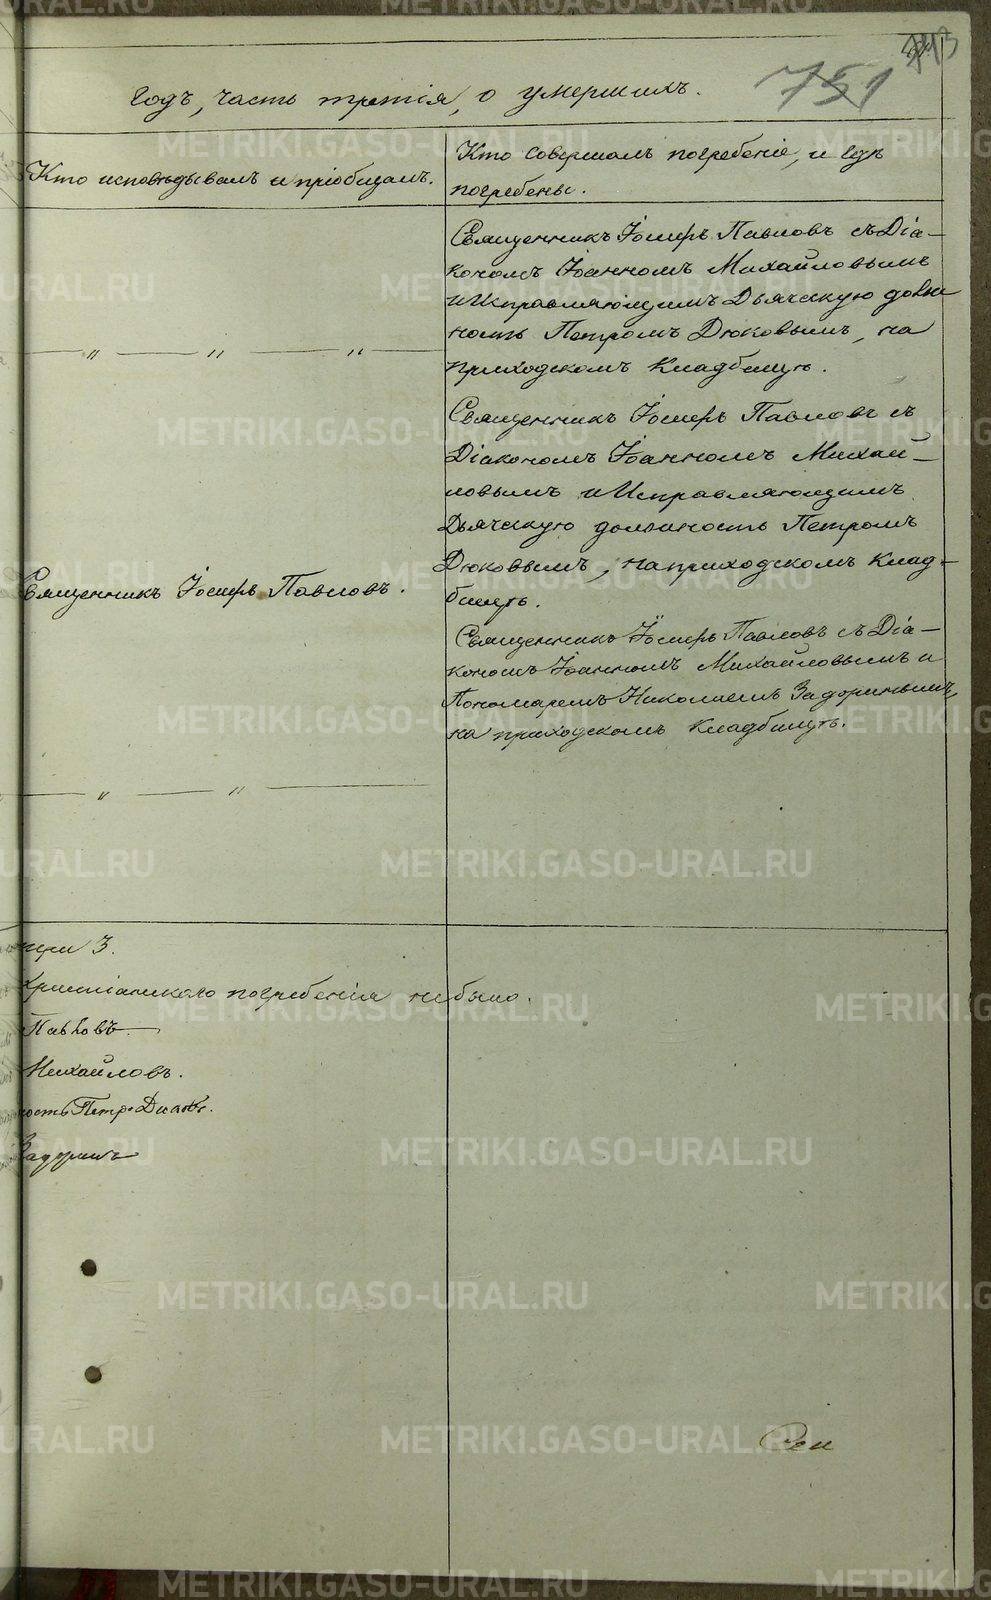 743
751
годъ, часть третія, о умершихъ.
Кто исповѣдывалъ и пріобщалъ.
Кто совершалъ погребеніе, и гдѣ
погребены.
Священникъ Іосифъ Павловъ съ Діа-
кономъ Іоанномъ Михайловымъ
и Исправляющимъ Дьячскую долж
ность Петромъ Дюковымъ, на
приходскомъ Кладбищѣ.
Священникъ Іосифъ Павловъ съ
Діакономъ Іоанномъ Михай-
ловымъ и Исправляющимъ
Дьячскую должность Петромъ
Дюковымъ, на приходскомъ Клад-
бищѣ.
Священникъ Іосифъ Павловъ.
Священникъ Іосифъ Павловъ съ Діа-
кономъ Іоанномъ Михайловымъ и
Пономаремъ Николаемъ Задоринымъ,
на приходскомъ Кладбищѣ.
3.
Христіанскаго погребенія не было.
Павловъ
Михайловъ.
ность Петр. Дюковъ.
Задоринъ
METRIKI.GASO-URAL.RU